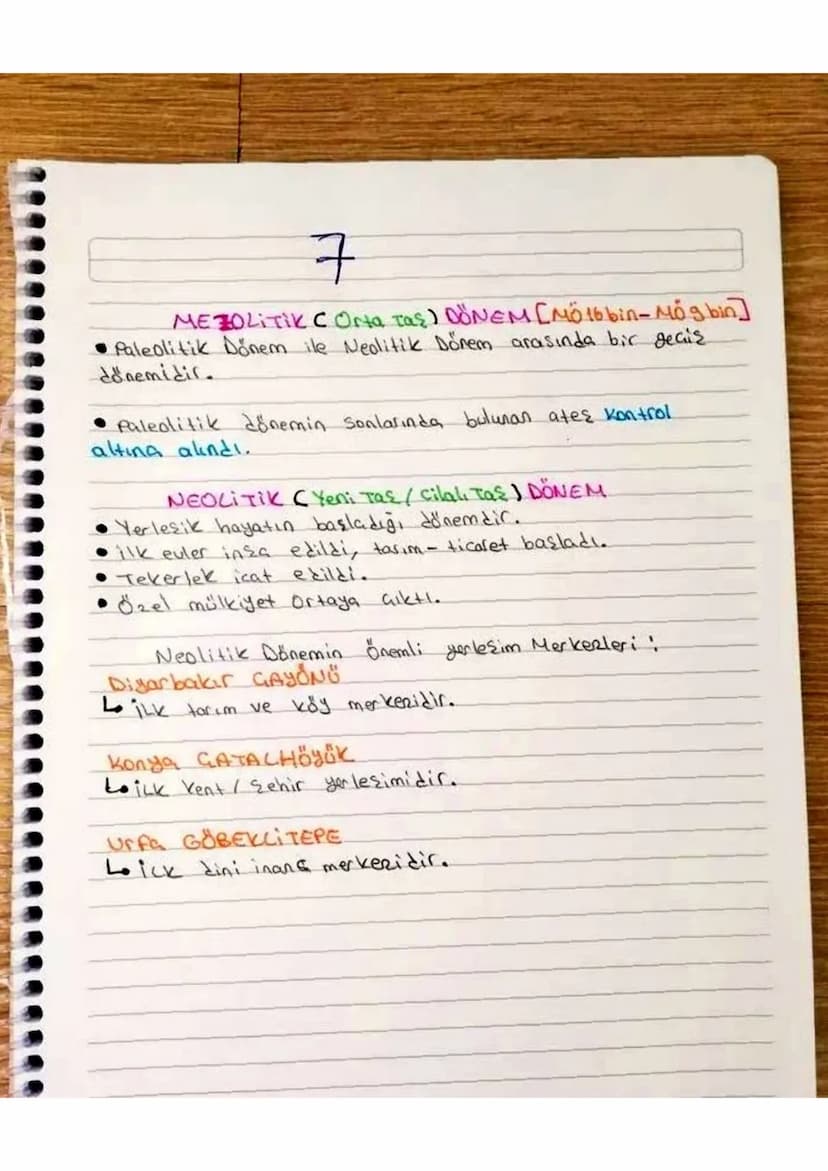 7
MEZOLİTİK ( Orta Taş ) DÖNEM [MÖ 16 bin - MÖ 9 bin]
• Paleolitik Dönem ile Neolitik Dönem arasında bir geçiş
dönemidir.
• Paleolitik dönemin sonlarında bulunan ateş kontrol
altına alındı.
NEOLİTİK ( Yeni Taş / Cilalı Taş ) DÖNEM
• Yerleşik hayatın başladığı dönemdir.
• İlk evler inşa edildi, tarım - ticaret başladı.
• Tekerlek icat edildi.
• Özel mülkiyet ortaya çıktı.
Neolitik Dönemin Önemli yerleşim Merkezleri :
Diyarbakır ÇAYÖNÜ
↳ İlk tarım ve köy merkezidir.
Konya ÇATALHÖYÜK
↳ İlk kent / şehir yerleşimidir.
Urfa GÖBEKLİTEPE
↳ İlk dini inanç merkezidir.